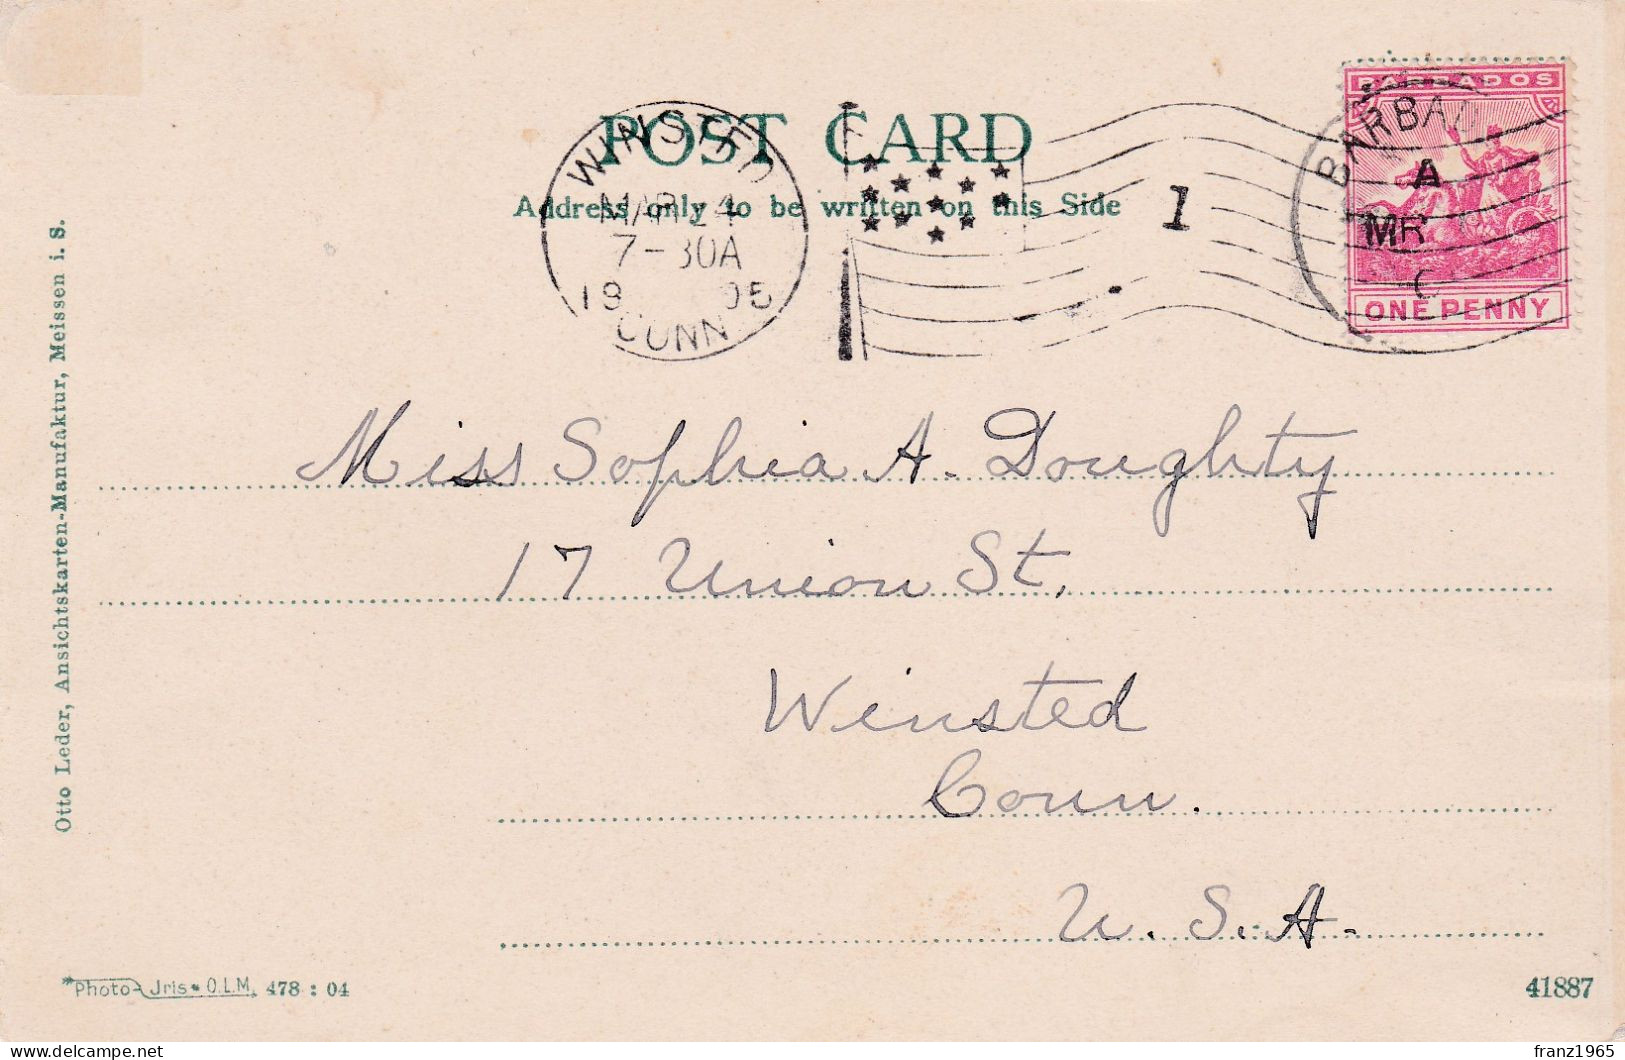 POST CARD
Address only to be written on this Side
WINSTED
MAR 24
7-30A
19 05
CONN
1
BARBADOS
BARBAD
A
MR
ONE PENNY
Miss Sophia A. Doughty
17 Union St.
Winsted
Conn.
U. S. A.
Otto Leder, Ansichtskarten-Manufaktur, Meissen i. S.
Photo-Jris O.L.M. 478 : 04
41887
delcampe.net
franz1965